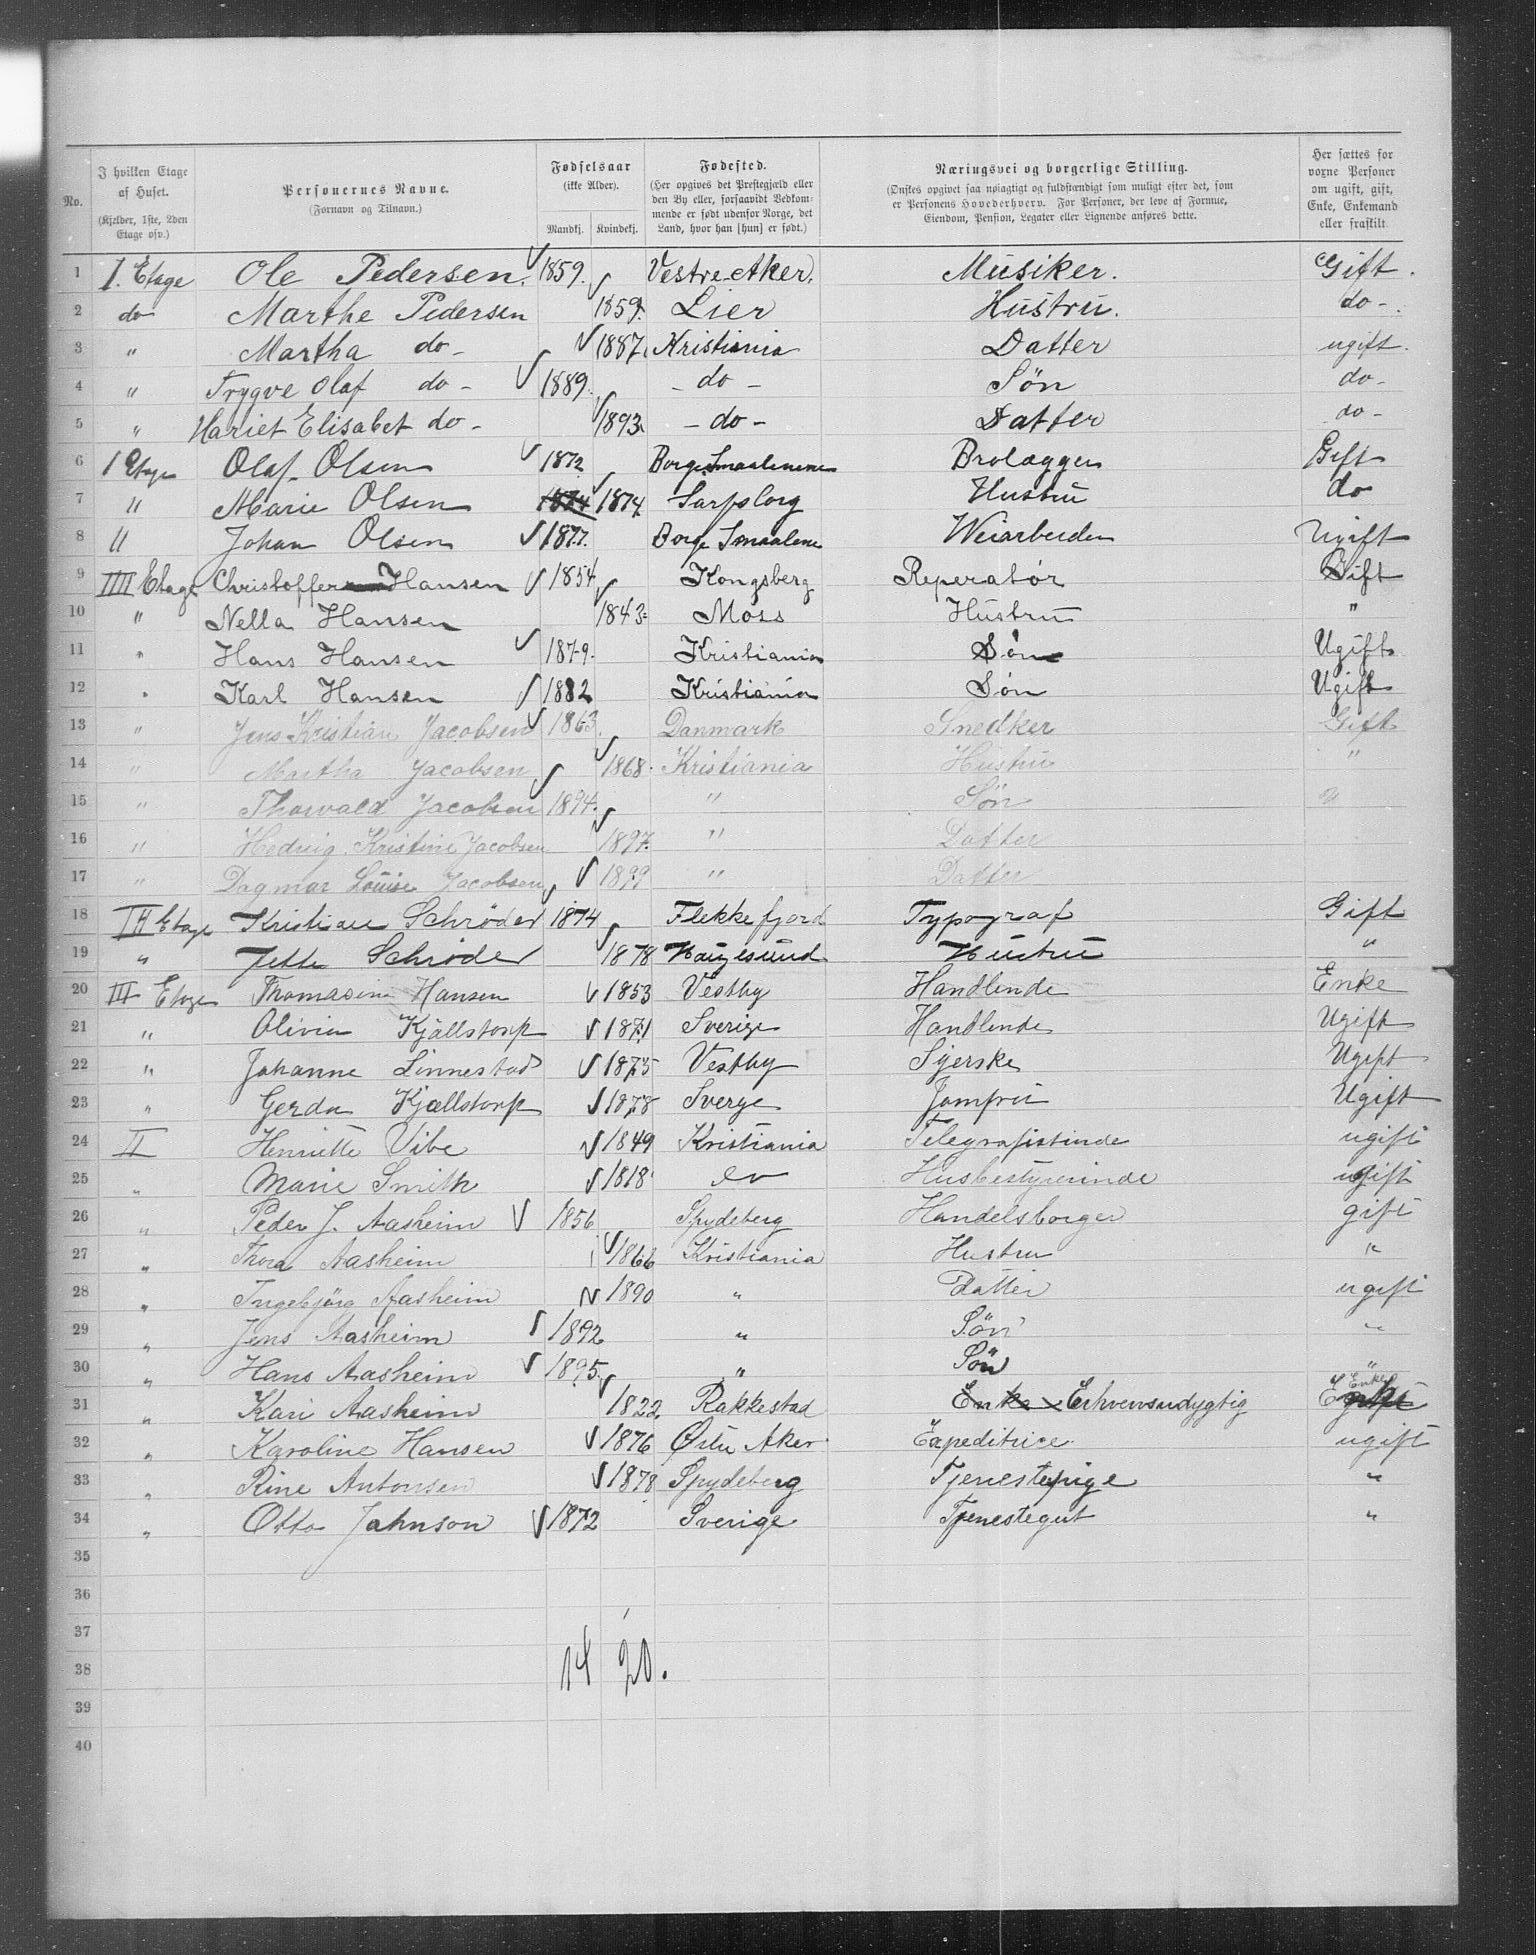 No.
I hvilken Etage af Huset. (Kjelder, 1ste, 2den Etage osv.)
Personernes Navne. (Fornavn og Tilnavn.)
Fødselsaar (ikke Alder). Mandkj. Kvindekj.
Fødested. (Her opgives det Præstegjæld eller den By eller, forsaavidt Vedkommende er født udenfor Norge, det Land, hvor han [hun] er født.)
Næringsvei og borgerlige Stilling. (Ønskes opgivet saa nøiagtigt og fuldstændigt som muligt efter det, som er Personens Hovederhverv. For Personer, der leve af Formue, Eiendom, Pension, Legater eller Lignende anføres dette.)
Her sættes for voxne Personer om ugift, gift, Enke, Enkemand eller fraskilt.
1 I. Etage Ole Pedersen. 1859. Vestre Aker. Musiker. Gift.
2 do Marthe Pedersen 1859. Lier Hustru. do -
3 " Martha do - 1887. Kristiania Datter ugift.
4 " Trygve Olaf do - 1889. - do - Søn do -
5 " Hariet Elisabet do - 1893. - do - Datter do -
6 1 Etage Olaf Olsen 1872 Borge Smaalenene Brolægger Gift
7 " Marie Olsen 1874 1874 Sarpsborg Hustru do
8 " Johan Olsen 1877. Borge Smaalene Weiarbeider Ugift
9 IIII Etage Christoffer Hansen 1854 Kongsberg Reperatør Gift
10 " Nella Hansen 1843 Moss Hustru "
11 " Hans Hansen 1879. Kristiania Søn Ugift
12 " Karl Hansen 1882 Kristiania Søn Ugift
13 " Jens Kristian Jacobsen 1863 Danmark Snedker Gift
14 " Martha Jacobsen 1868. Kristiania Hustru "
15 " Thorvald Jacobsen 1894. " Søn
16 " Hedvig Kristine Jacobsen 1897. " Datter
17 " Dagmar Louise Jacobsen 1899 " Datter
18 Etage Kristian Schrøder 1874 Flekkefjord Typograf Gift
19 " Jette Schrøder 1878 Haugesund Hustru "
20 III Etage Thomasine Hansen 1853 Vestby Handlende Enke
21 " Olivia Kjällstorp 1871 Sverige Handlende Ugift
22 " Johanne Linnestad 1875 Vestby Syerske Ugift
23 " Gerda Kjællstorp 1878 Sverge Jomfru Ugift
24 II Henriette Vibe 1849 Kristiania Telegrafistinde ugift
25 " Marie Smith 1818 do Husbestyrerinde ugift
26 " Peder J. Aasheim 1856 Spydeberg Handelsborger gift
27 " Thora Aasheim 1866 Kristiania Hustru "
28 " Ingebjörg Aasheim 1890 " Datter ugift
29 " Jens Aasheim 1892 " Søn "
30 " Hans Aasheim 1895. " Søn "
31 " Kari Aasheim 1822 Rakkestad Enke Erhvervsudygtig Enke
32 " Karoline Hansen 1876 Østre Aker Expeditrice ugift
33 " Rine Antonsen 1878 Spydeberg Tjenestepige "
34 " Otto Johnson 1872 Sverige Tjenestegut "
35
36
37
38 14 20.
39
40